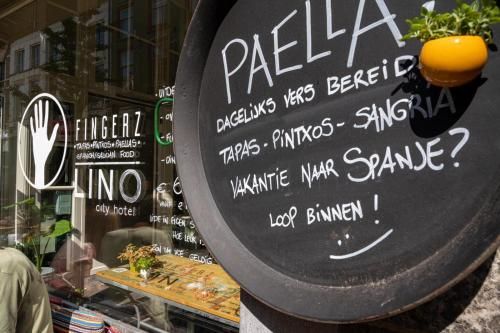 PAELLA
DAGELIJKS VERS BEREID
TAPAS - PINTXOS - SANGRIA
VAKANTIE NAAR SPANJE?
LOOP BINNEN!
FINGERZ
TAPAS•PINTXOS•PAELLAS
SPANISH/BASQUIAN FOOD
LINO
city hotel